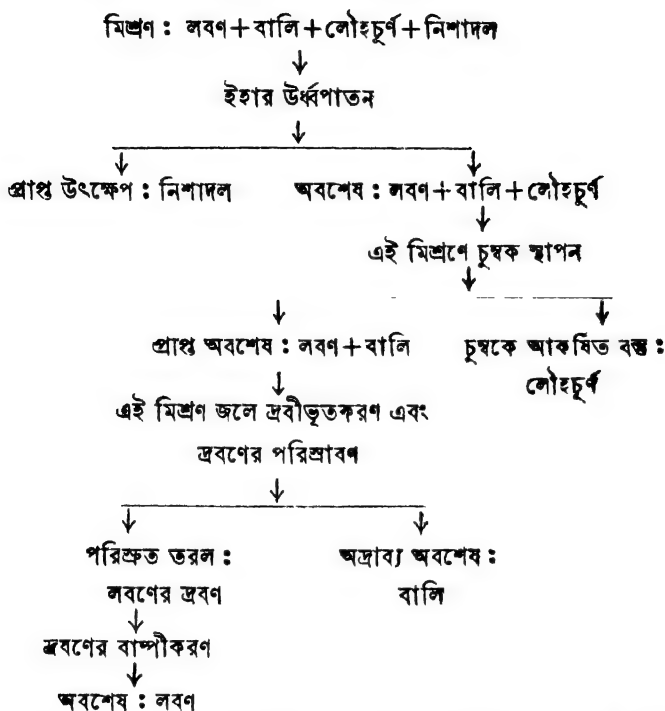 মিশ্রণ : লবণ+বালি+লৌহচূর্ণ+নিশাদল
ইহার উর্ধ্বপাতন
প্রাপ্ত উৎক্ষেপ : নিশাদল
অবশেষ : লবণ+বালি+লৌহচূর্ণ
এই মিশ্রণে চুম্বক স্থাপন
প্রাপ্ত অবশেষ : লবণ+বালি
চুম্বকে আকর্ষিত বস্তু :
লৌহচূর্ণ
এই মিশ্রণ জলে দ্রবীভূতকরণ এবং
দ্রবণের পরিস্রাবণ
পরিস্রুত তরল :
লবণের দ্রবণ
অদ্রাব্য অবশেষ :
বালি
দ্রবণের বাষ্পীকরণ
অবশেষ : লবণ